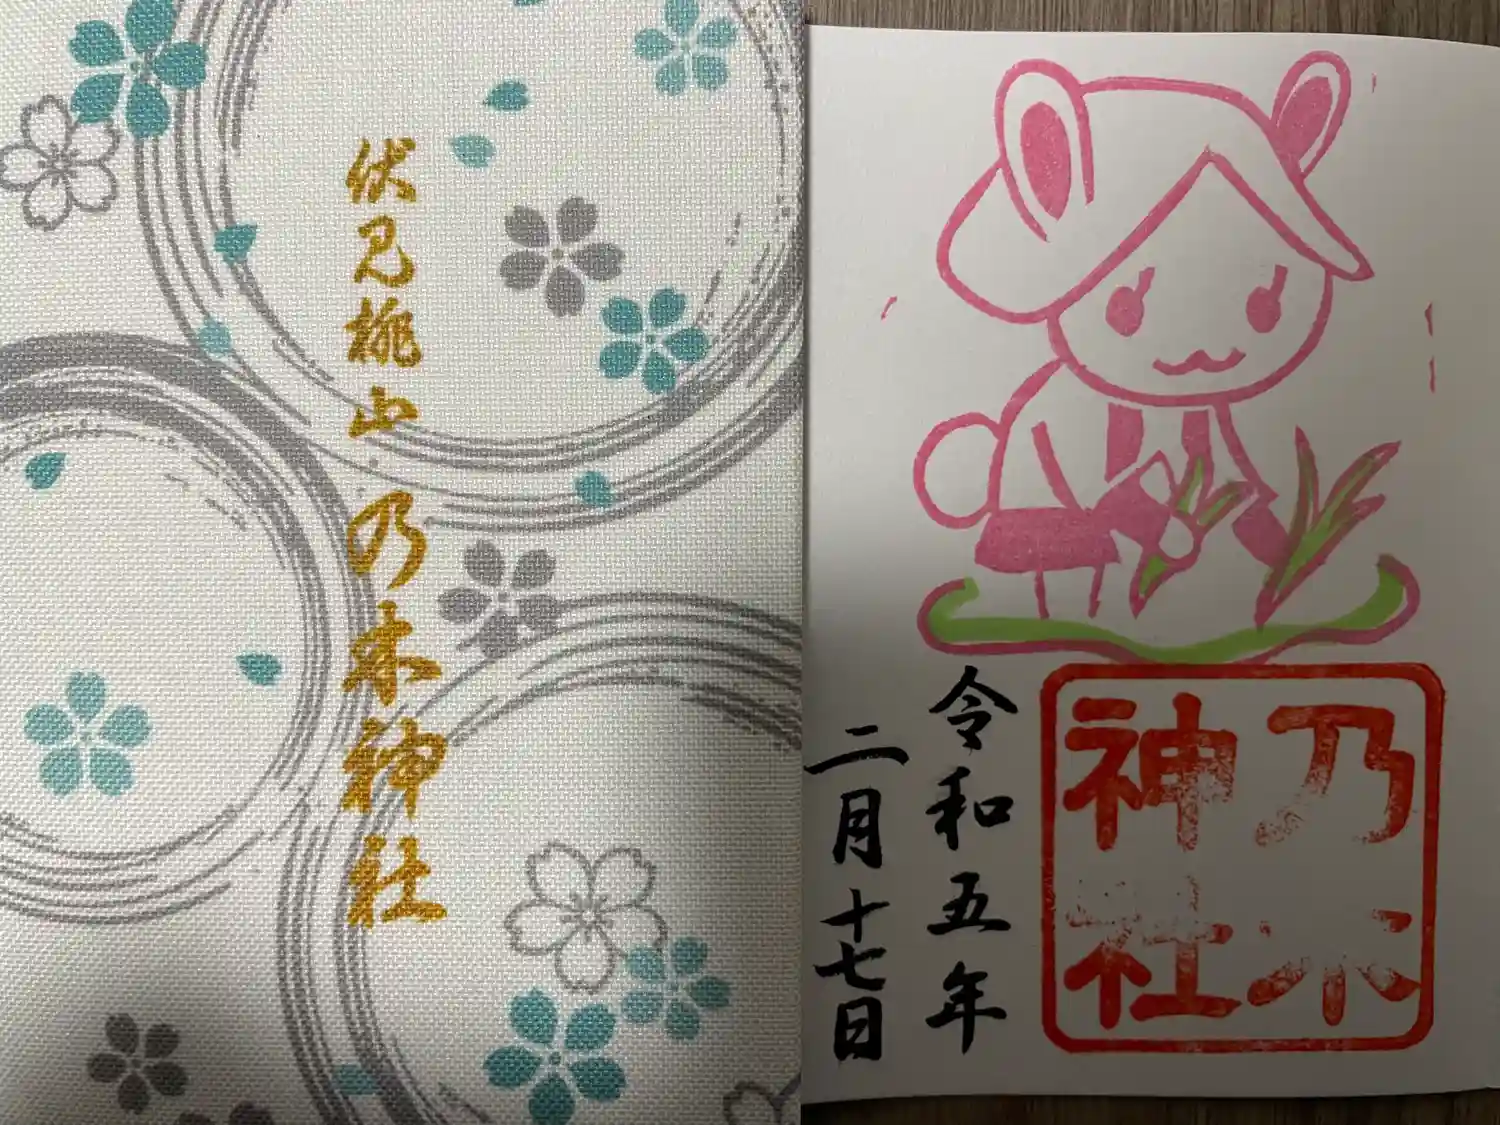 伏見桃山
乃木神社
乃木
神社
令和五年
二月十七日